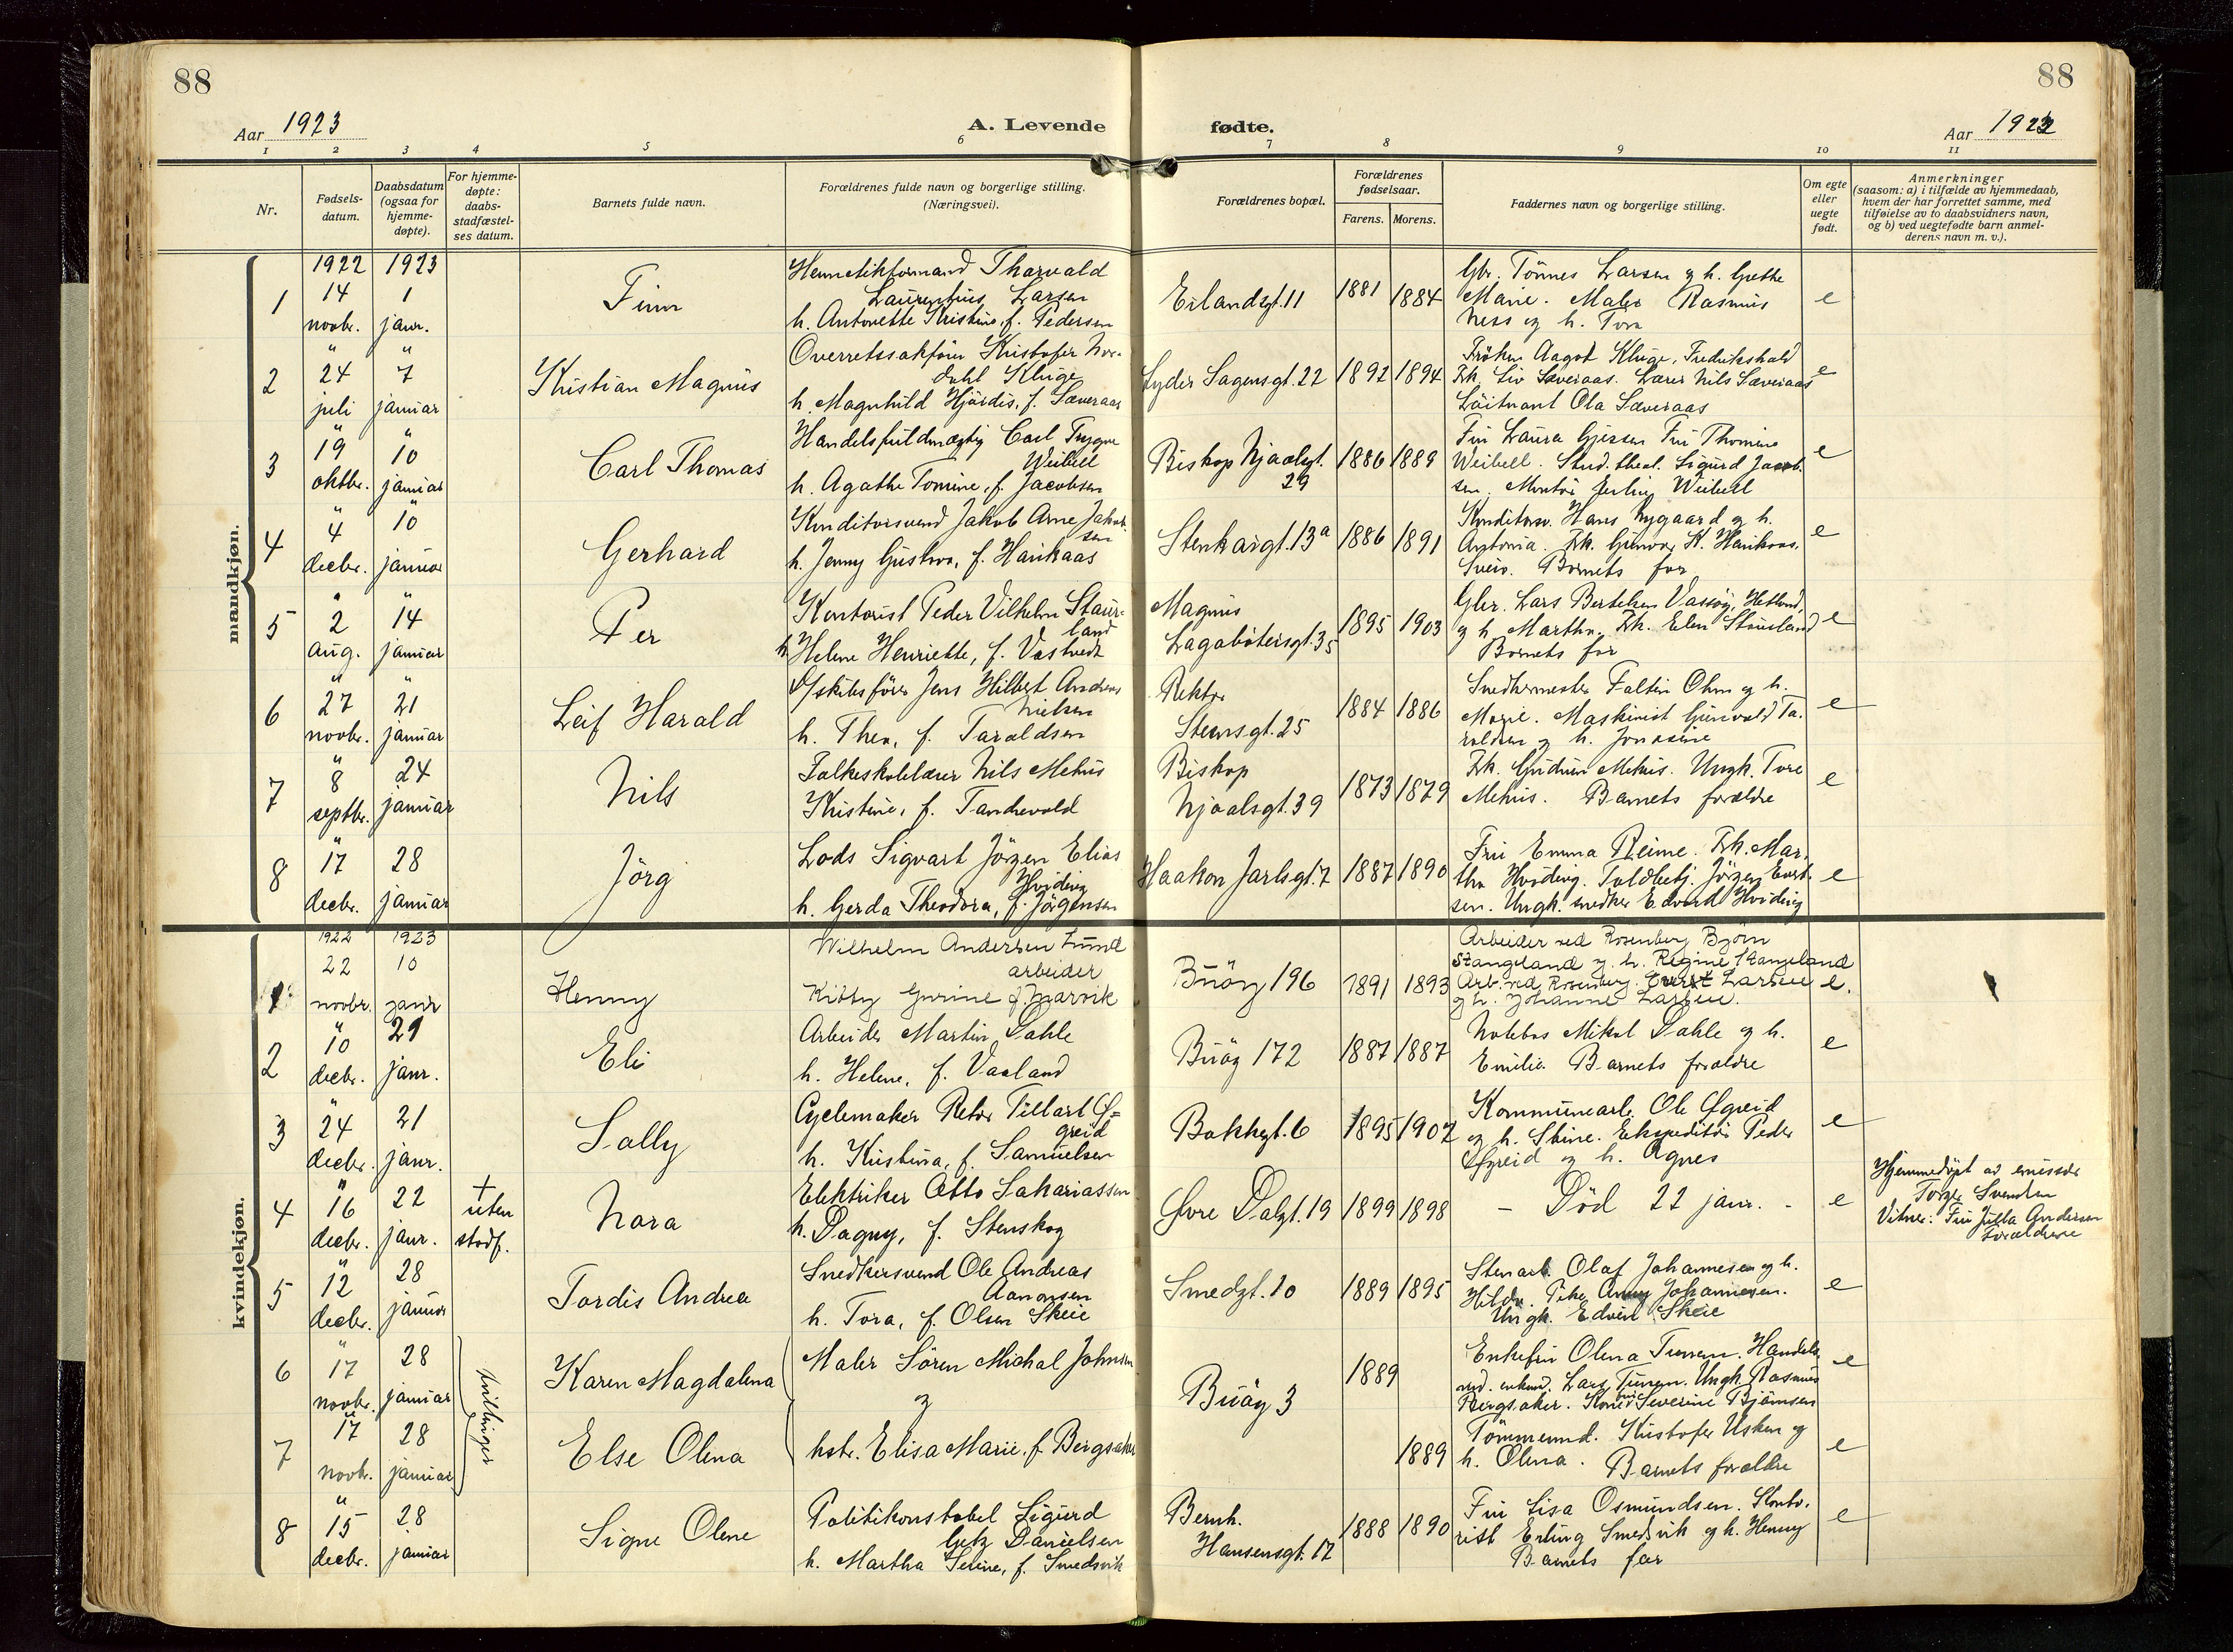 88
88
Aar 1923
A. Levende
fødte.
Aar 1923
1 2 3 4 5 6 7 8 9 10 11
Nr.
Fødsels-
datum.
Daabsdatum
(ogsaa for
hjemme-
døpte).
For hjemme-
døpte:
daabs-
stadfæstel-
ses datum.
Barnets fulde navn.
Forældrenes fulde navn og borgerlige stilling.
(Næringsvei).
Forældrenes bopæl.
Forældrenes
fødselsaar.
Farens. Morens.
Faddernes navn og borgerlige stilling.
Om egte
eller
uegte
født.
Anmerkninger
(saasom: a) i tilfælde av hjemmedaab,
hvem der har forrettet samme, med
tilføielse av to daabsvidners navn,
og b) ved uegtefødte barn anmel-
derens navn m. v.).
mandkjøn.
1922 1923
1
14 novbr.
1 janr.
Finn
Hermetikformand Thorvald
Laurentius Larsen
h. Antonette Kristine, f. Pedersen
Erlandsgt. 11
1881 1884
Gbr. Tönnes Larsen og h. Grethe
Marie. Maler Rasmus
Ness og h. Tora
e
2
" 24 juli
" 7 januar
Kristian Magnus
Overretssakfører Kristofer Nor-
dahl Kluge
h. Magnhild Hjördis, f. Sæveraas
Lyder Sagensgt. 22
1892 1894
Fröken Aagot Kluge, Fredrikshald
Frk. Liv Sæveraas. Lærer Nils Sæveraas
Löitnant Ola Sæveraas
e
3
" 19 oktbr.
" 10 januar
Carl Thomas
Handelsfuldmægtig Carl Trygve
Weibell
h. Agathe Tomine, f. Jacobsen
Biskop Njaalsgt.
29
1886 1889
Fru Laura Gjersen Fru Thomine
Weibell. Stud. theol. Sigurd Jacob-
sen. Montör Erling Weibell
e
4
" 4 decbr.
" 10 januar
Gerhard
Konditorsvend Jakob Arne Jakob-
sen
h. Jenny Gustava, f. Haukaas
Stenkargt. 13a
1886 1891
Konditorsv. Hans Nygaard og h.
Antonia. Frk. Gunvor K. Haukaas,
Sveio. Barnets far
e
5
" 2 aug.
" 14 januar
Per
Kontorist Peder Vilhelm Staur-
land
h. Helene Henriette, f. Vastvedt
Magnus
Lagabötersgt. 35
1895 1903
Gbr. Lars Bertelsen Vassöy, Hetland,
og h. Martha. Frk. Elen Stausland
Barnets far
e
6
" 27 novbr.
" 21 januar
Leif Harald
D/skibsförer Jens Hilbert Andreas
Nielsen
h. Thea, f. Taraldsen
Rektor
Steensgt. 25
1884 1886
Snedkermester Faltin Ohm og h.
Marie. Maskinist Gunvald Ta-
raldsen og h. Jonasine
e
7
" 8 septbr.
24 januar
Nils
Folkeskolelærer Nils Mehus
Kristine, f. Tandrevold
Biskop
Njaalsgt. 39
1873 1879
Frk. Gudrun Mehus. Ungk. Tore
Mehus. Barnets forældre
e
8
" 17 decbr.
28 januar
Jörg
Lods Sigvart Jörgen Elias
Hviding
h. Gerda Theodora, f. Jörgensen
Haakon Jarlsgt. 7
1887 1890
Fru Emma Reime. Frk. Mar-
tha Hviding. Toldbetj. Jörgen Evert-
sen. Ungk. snedker Edvard Hviding
e
kvindekjøn.
1922 1923
1
22 novbr.
10 janr
Henny
Wilhelm Andersen Lunde
arbeider
Kitty Gurine f. Marvik
Buöy 196
1891 1893
Arbeider ved Rosenberg Bjorn
Stangeland og h. Regine Stangeland
Arb. ved Rosenberg. Evert Larsen
og h. Johanne Larsen.
e.
2
" 10 decbr.
21 janr.
Eli
Arbeider Martin Dahle
h. Helene, f. Vaaland
Buöy 172
1887 1887
Notebas Mikal Dahle og h.
Emilie. Barnets forældre
e
3
" 24 decbr.
21 janr.
Solly
Cyclemaker Peter Tillart Øf-
greid
h. Kristina, f. Samuelsen
Bakkegt. 6
1895 1902
Kommunearb. Ole Øfgreid
og h. Stine. Ekspeditör Peder
Øfgreid og h. Agnes
e
4
" 16 decbr.
22 janr.
+
uten
stadf.
Nora
Elektriker Otto Sakariassen
h. Dagny, f. Stenskog
Øvre Dalgt. 19
1899 1898
- Död 22 janr. -
e
Hjemmedöpt av emissær
Torger Svendsen
Vitner: Fru Jutta Andersen
Forældrene
5
" 12 decbr.
28 januar
Tordis Andrea
Snedkersvend Ole Andreas
Aanonsen
h. Tora, f. Olsen Skeie
Smedgt. 10
1889 1895
Stenarb. Olaf Johannesen og h.
Hilda. Pike Anny Johannesen.
Ungk. Edvin Skeie
e
6
" 17 novbr.
28 januar
tvillinger
Karen Magdalena
Maler Sören Michal Johnsen
og
Buöy 3
1889
Enkefru Olena Tunem. Handels-
red. enkem. Lars Tunem. Ungk. Rasmus
Bergsaker. Kone Severine Bjömsen
e
7
" 17 novbr.
28 januar
Else Olena
hstr. Elisa Marie, f. Bergsaker
1889
Tömmermd. Kristofer Usken og
h. Olena. Barnets forældre
e
8
" 15 decbr.
28 januar
Signe Olene
Politikonstabel Sigurd
Getz Danielsen
h. Martha Serine, f. Smedsvik
Bernh.
Hansensgt. 17
1888 1890
Fru Lisa Osmundsen. Konto-
rist Erling Smedsvik og h. Henny
Barnets far
e